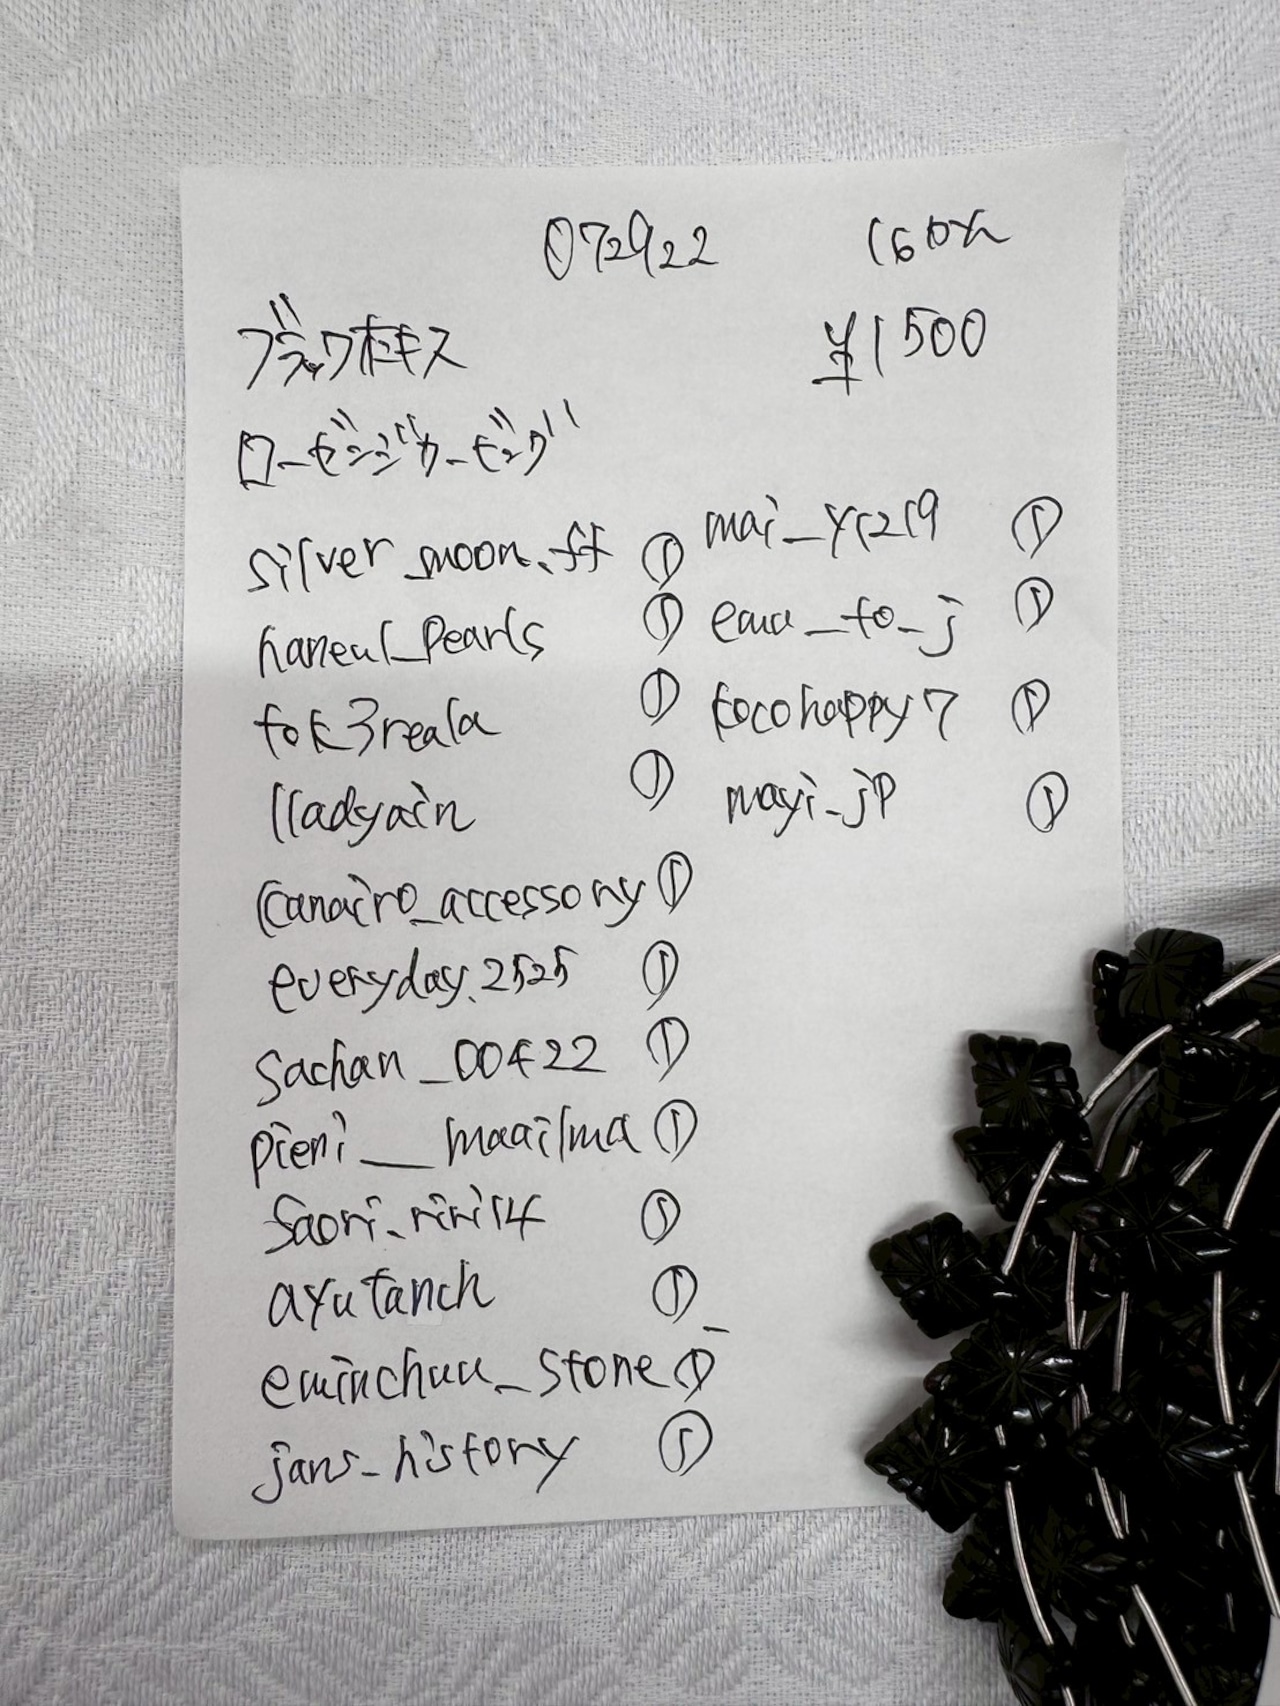 072922
160次
ブラックオニキス
¥1500
ローゼンジカービング
silver_moon.ff ①
haneul_pearls ①
tok3reala ①
lladyain ①
canairo_accessory ①
everyday.2525 ①
sachan_00422 ①
pieni__maailma ①
saori_riri14 ①
ayutanch ①
eminchuu_stone ①
jans_history ①
mai_y1219 ①
emu_to_j ①
kocohappy7 ①
mayi_jp ①